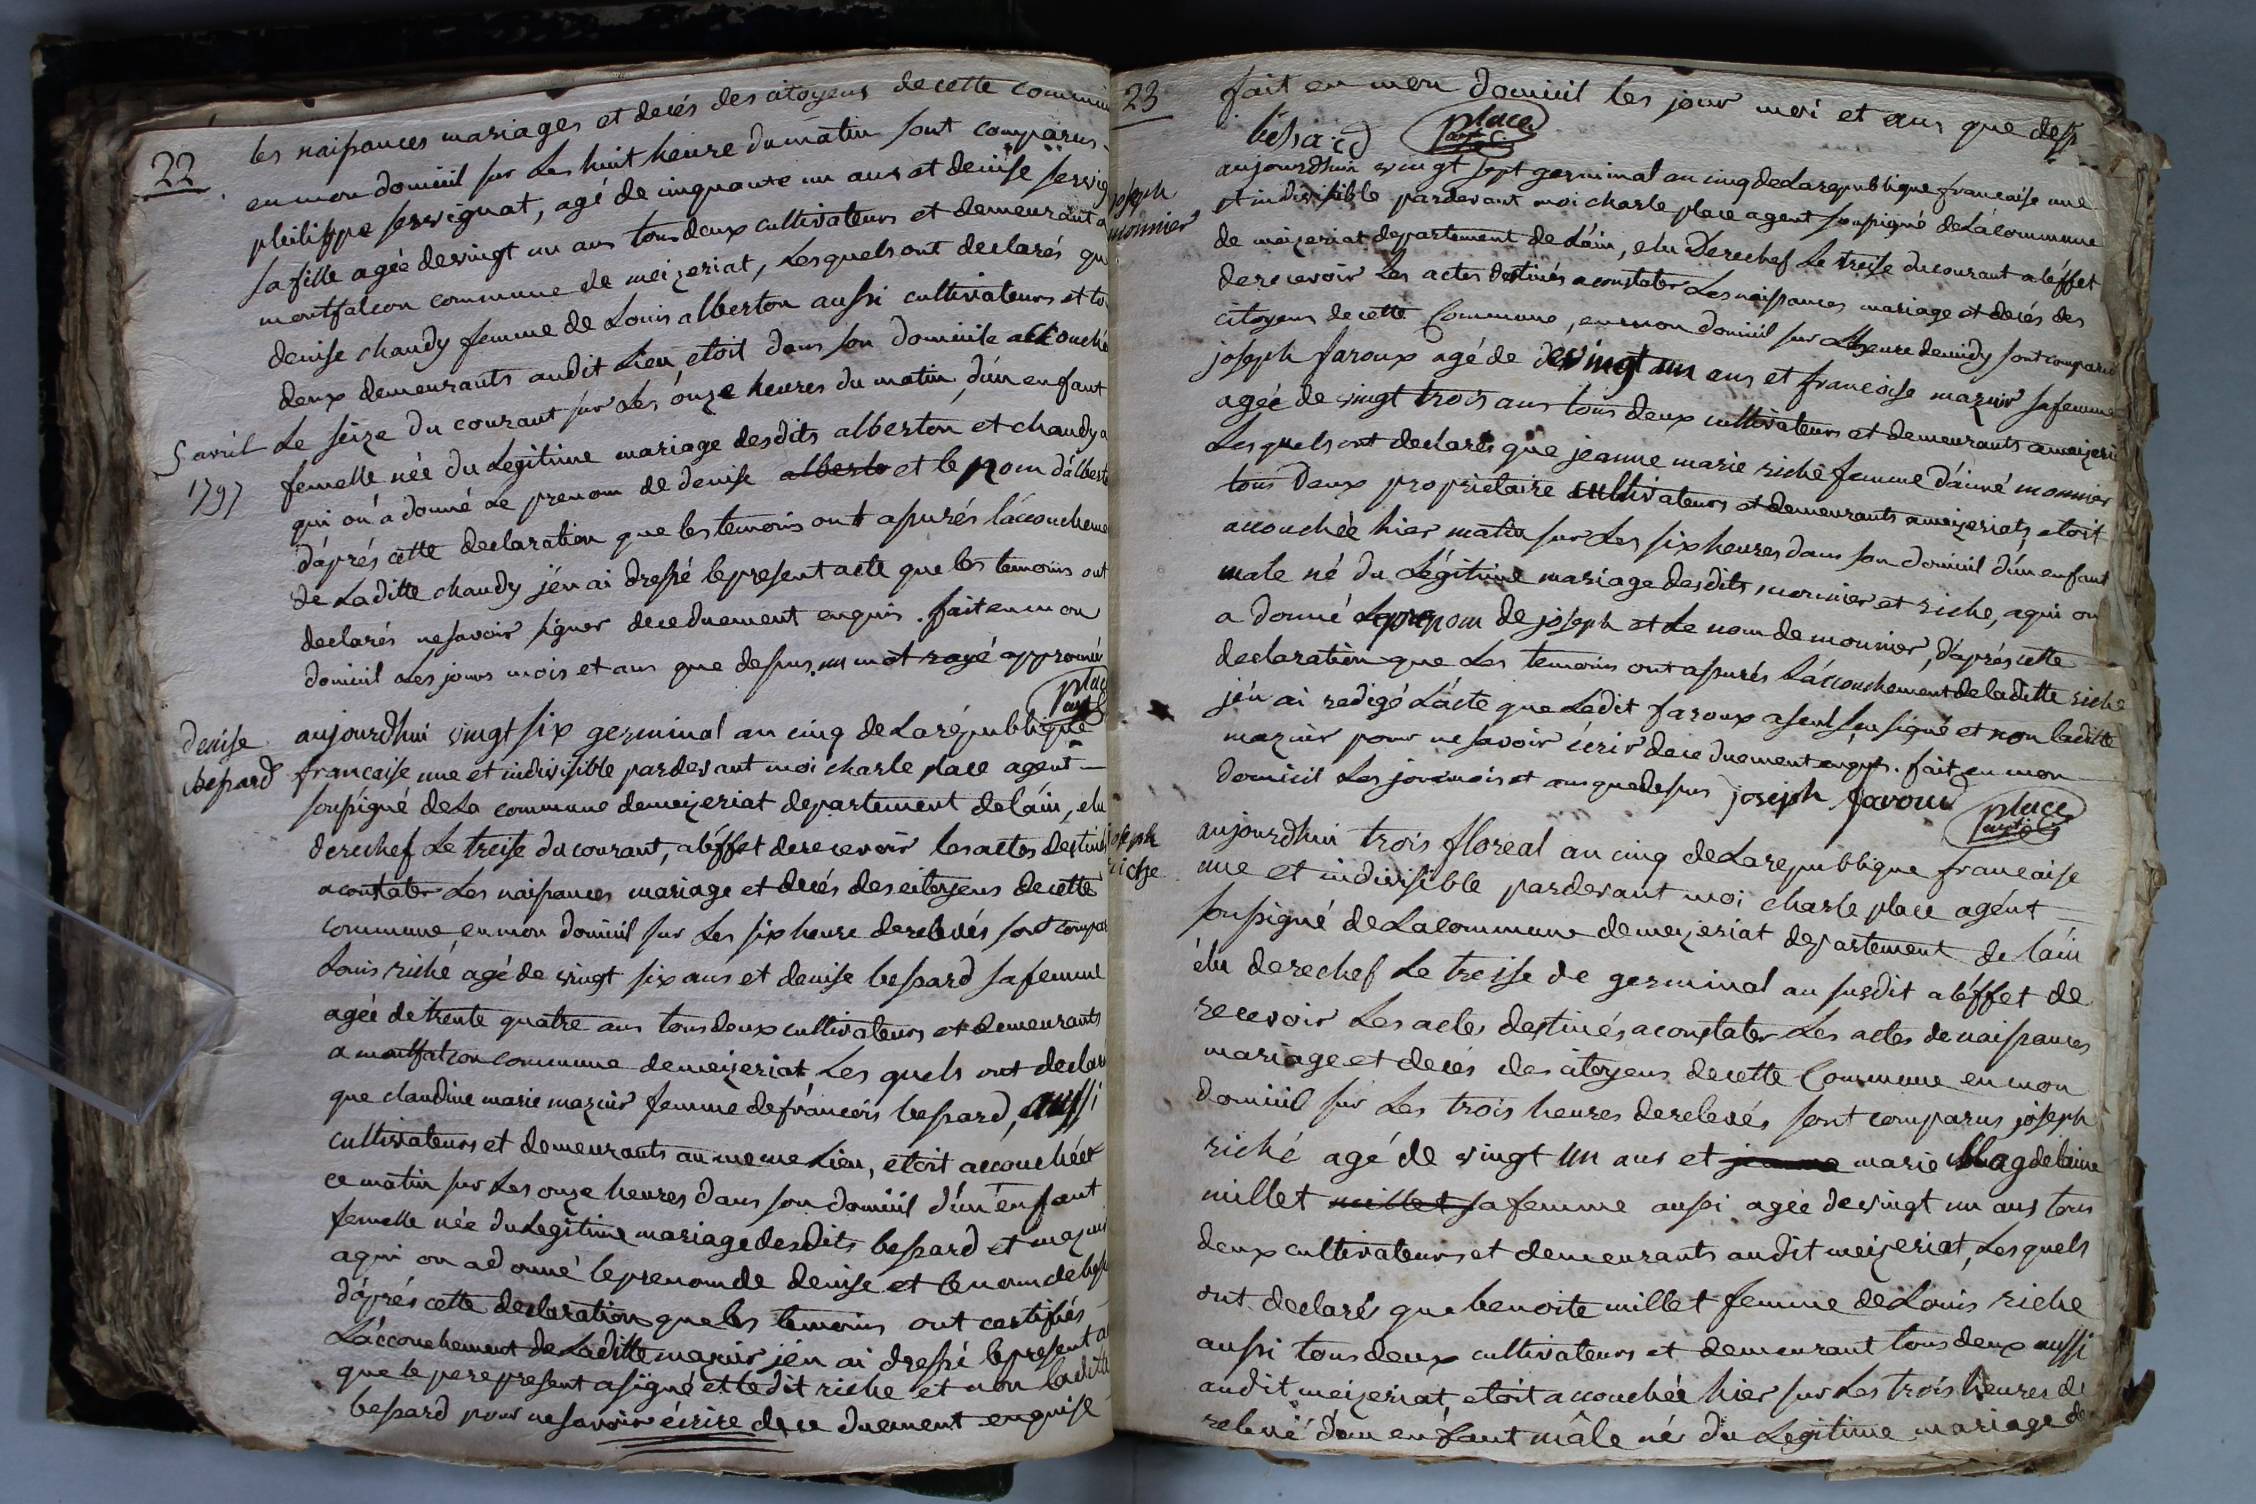 22
les naissances mariages et decés des citoyens de cette commun
en mon domicil sur Les huit heure du matin sont comparus
philippe servignat, agé de cinquante un ans et denise servig
sa fille agée de vingt un ans tous deux cultivateurs et demeurant a
montfalcon commune de meizeriat, Lesquels ont declarés qu
denise chaudy femme de Louis alberton aussi cultivateurs et to
deux demeurants audit Lieu, etoit dans son domicile accouché
5 avril 1797
Le seize du courant sur Les onze heures du matin, d'un enfant
femelle née du Legitime mariage desdits alberton et chaudy a
qui on a donné Le prenom de denise alberto et le nom d'albert
d'aprés cette declaration que les temoins ont assurés l'accoucheme
de Laditte chaudy j'en ai dressé le present acte que les temoins ont
declarés ne savoir signer de ce duement enquis. fait en mon
domicil Les jours mois et ans que dessus, un mot rayé approuvé
place
denise
bessard
aujourdhui vingt six germinal an cinq de La republique
francaise une et indivisible pardevant moi charle place agent
soussigné de La commune de meizeriat departement de láin, elu
derechef Le treise du courant, a léffet de recevoir les actes destiné
a constater Les naissances mariage et decés des citoyens de cette
commune, en mon domicil sur Les six heure de relevés sont compar
Louis riché agé de vingt six ans et denise bessard sa femme
agée de trente quatre ans tous deux cultivateurs et demeurants
a montfalcon commune de meizeriat Les quels ont declar
que claudine marie mazuir femme de françois bessard, aussi
cultivateurs et demeurants au meme Lieu, etoit accouchée
ce matin sur Les onze heures dans son domicil d'un enfant
femelle née du Legitime mariage desdits bessard et mazui
a qui on a donné le prenom de denise et le nom de bess
d'aprés cette declaration que les temoins ont certifiés
L'accouchement de Laditte mazuir j'en ai dressé le present a
que le pere present a signé et ledit riche et non laditte
bessard pour ne savoir écrire de ce duement enquise
23
fait en mon domicil les jour moi et ans que dess
bésard place
joseph
monnier
aujourdhui vingt sept germinal an cinq de La republique francaise une
et indivisible pardevant moi charle place agent soussigné de La commune
de meizeriat departement de Láin, elu Derechef Le treise du courant a léffet
de recevoir Les actes destinés a constater Les naissances mariage et decés des
citoyens de cette Commune, en mon domicil sur Lheure de midy sont comparu
joseph faroux agé de vingt un ans et francoise mazuir sa femme
agée de vingt trois ans tous deux cultivateurs et demeurants a meizeri
Les quels ont declarés que jeanne marie riché femme d'aimé monnier
tous Deux proprietaire cultivateurs et demeurants a meizeriat, etoit
accouchée hier matin sur Les six heures dans son domicil d'un enfant
male né du Légitime mariage desdits monnier et riche, a qui on
a donné Le prenom de joseph et Le nom de monnier, d'aprés cette
declaration que Les temoins ont assurés L'accouchement de laditte riche
j'en ai redigé L'acte que Ledit faroux a seul soussigné et non laditte
mazuir pour ne savoir écrir de ce duement enquis. fait en mon
domicil Les jour mois et ans que dessus joseph farouu place
joseph
riche
aujourdhui trois floreal an cinq de La republique francaise
une et indivisible pardevant moi charle place agént
soussigné de La commune de meizeriat departement de láin
élu derechef Le treise de germinal an susdit a léffet de
recevoir Les actes destinés a constater Les actes de naissances
mariage et decés des citoyens de cette Commune en mon
domicil sur Les trois heures de relevés sont comparus joseph
riché agé de vingt un ans et jeanne marie Magdelaine
millet millet sa femme aussi agée de vingt un ans tous
deux cultivateurs et demeurants audit meizeriat, Les quels
ont declarés que benoite millet femme de Louis riche
aussi tous deux cultivateurs et demeurant tous deux aussi
audit meizeriat, etoit accouchée hier sur Les trois heures de
relevé d'un enfant mâle né du Legitime mariage de